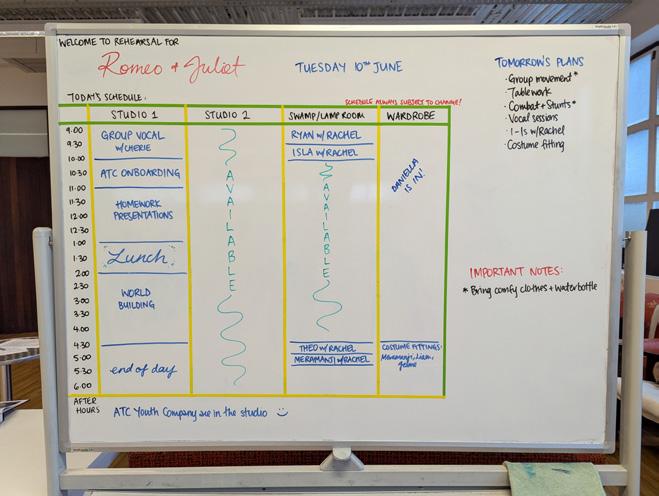 WELCOME TO REHEARSAL FOR
Romeo + Juliet
TUESDAY 10TH JUNE
TODAY'S SCHEDULE:
SCHEDULE ALWAYS SUBJECT TO CHANGE!
STUDIO 1
STUDIO 2
SWAMP/LAMP ROOM
WARDROBE
9.00
9.30
10.00
10.30
11.00
11.30
12.00
12.30
1.00
1.30
2.00
2.30
3.00
3.30
4.00
4.30
5.00
5.30
6.00
GROUP VOCAL
W/CHERIE
ATC ONBOARDING
HOMEWORK
PRESENTATIONS
Lunch
WORLD
BUILDING
end of day
AVAILABLE
RYAN W/RACHEL
ISLA W/RACHEL
AVAILABLE
THEO W/RACHEL
MERAMANJI W/RACHEL
DANIELLA
IS IN!
COSTUME FITTINGS:
Meramanji, Liam,
AFTER
HOURS
ATC Youth Company are in the studio
TOMORROW'S PLANS
· Group movement*
· Tablework
· Combat + Stunts*
· Vocal sessions
· 1-1s w/Rachel
· Costume fitting
IMPORTANT NOTES:
* Bring comfy clothes + waterbottle